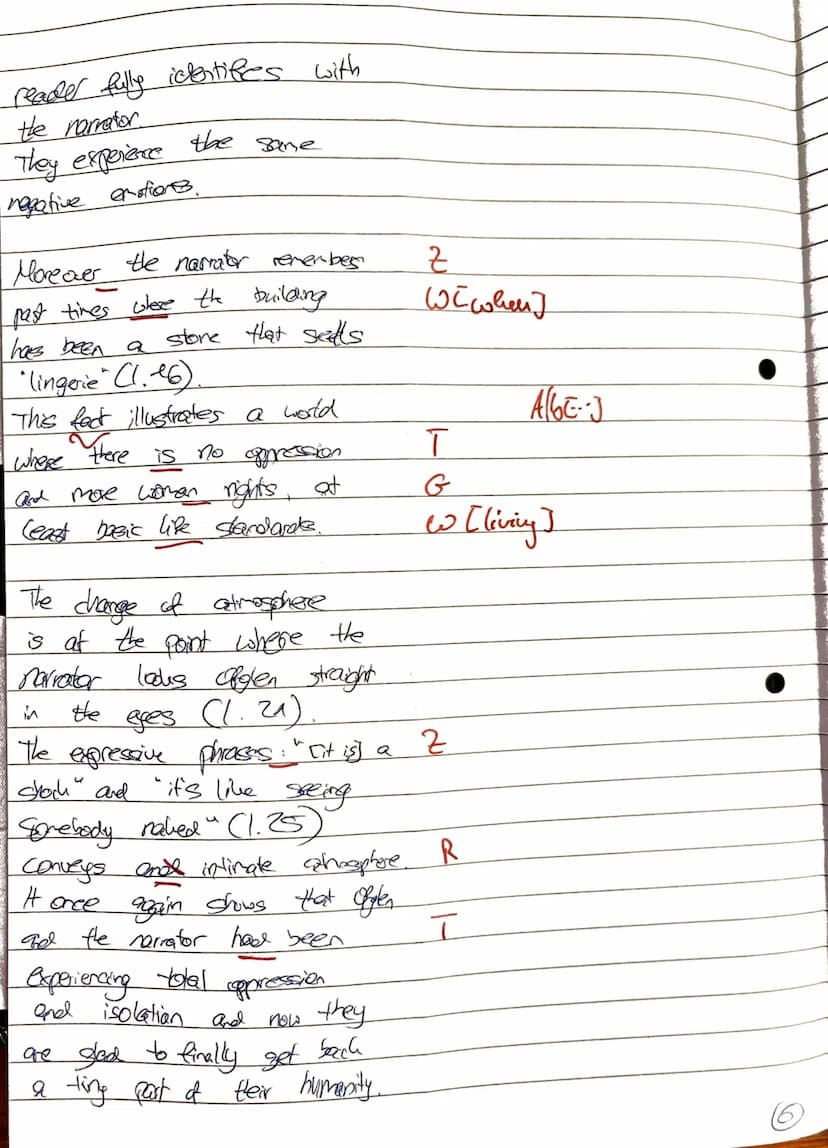 reader fully identifies with
the narrator.
They experience the same
negative emotions.
Moreover the narrator remembers Z
past times where the building W[when]
has been a store that sells
"lingerie" (l. 16).
This fact illustrates a world A[b[..]
where there is no oppression T
and more woman rights, at G
least basic life standards. W [living]
The change of atmosphere
is at the point where the
narrator looks Ofglen straight
in the eyes (l. 21).
The expressive phrases: "[it is] a Z
shock" and "it's like seeing
somebody naked" (l. 25)
conveys and intimate atmosphere. R
It once again shows that Ofglen
and the narrator had been T
experiencing total oppression
and isolation and now they
are glad to finally get back
a tiny part of their humanity.
6